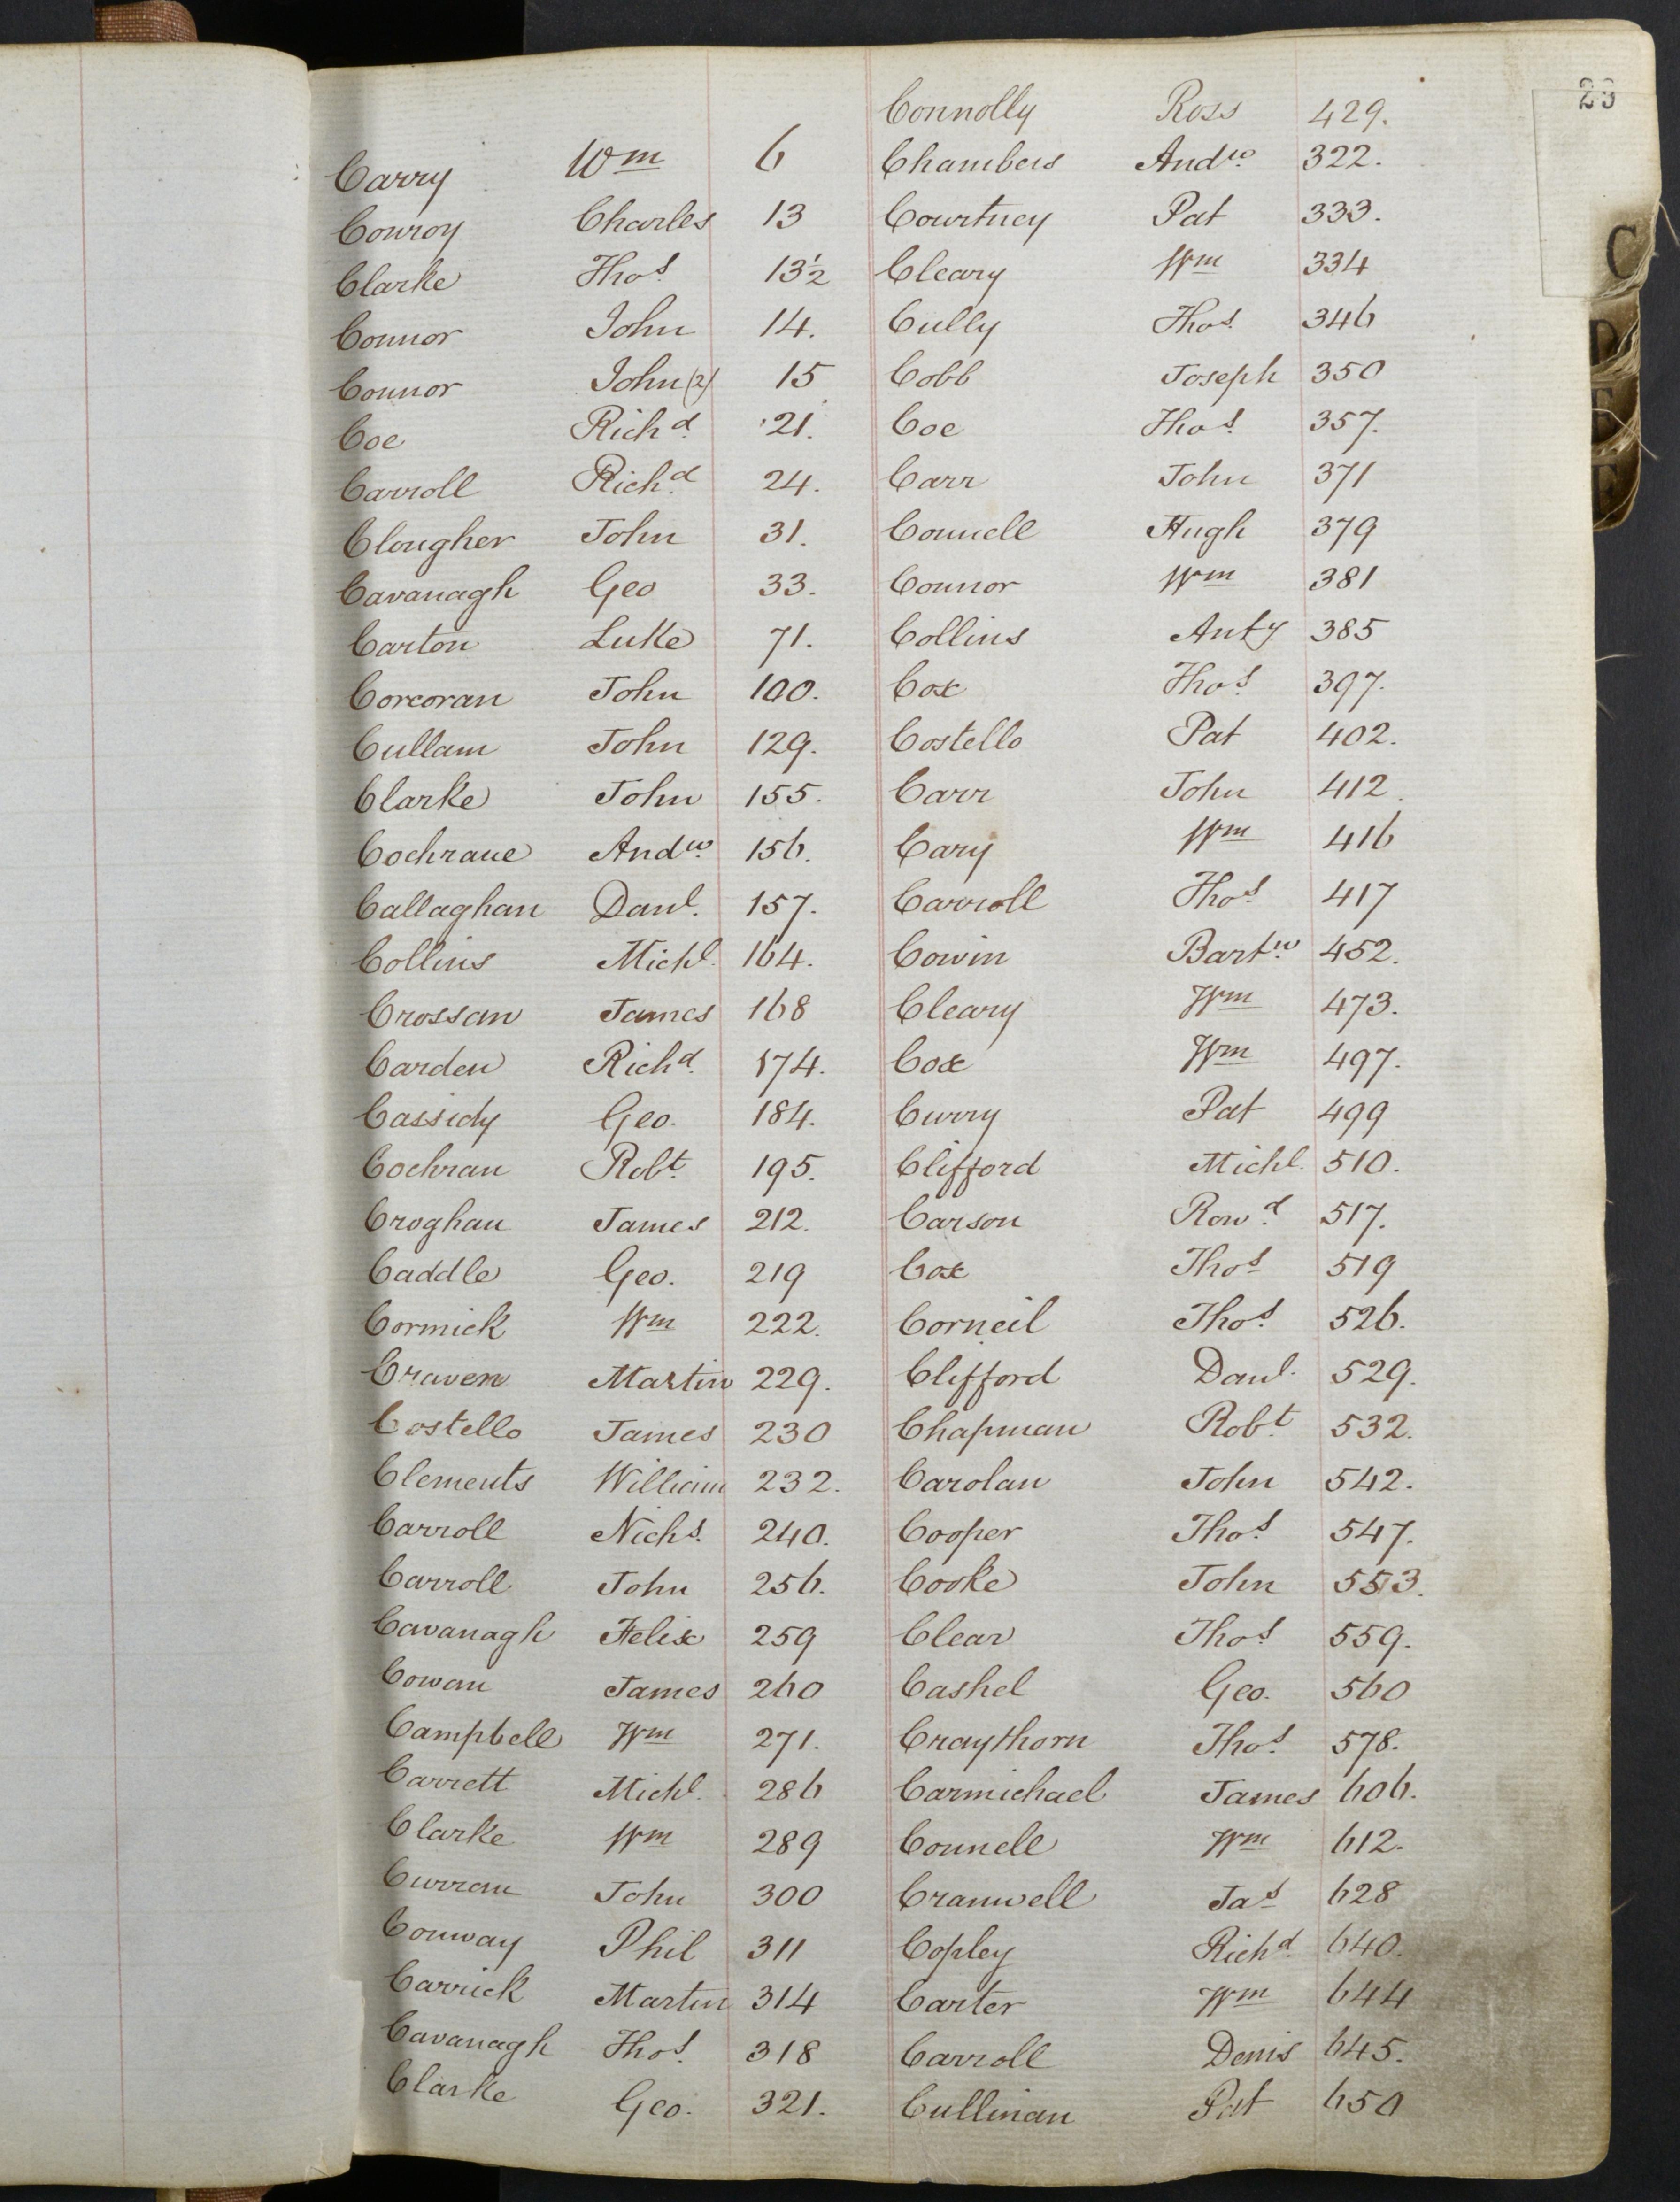 23
Carry Wm 6
Conroy Charles 13
Clarke Thos. 13½
Connor John 14.
Connor John (2) 15
Coe Richd. 21.
Carroll Richd. 24.
Clougher John 31.
Cavanagh Geo 33.
Carton Luke 71.
Corcoran John 100.
Cullam John 129.
Clarke John 155.
Cochrane Andw. 156.
Callaghan Danl. 157.
Collins Michl. 164.
Crossan James 168
Carden Richd. 174.
Cassidy Geo. 184.
Cochran Robt. 195.
Croghan James 212.
Caddle Geo. 219
Cormick Wm 222.
Craven Martin 229.
Costello James 230
Clements William 232.
Carroll Nichs. 240.
Carroll John 256.
Cavanagh Felix 259
Cowan James 260
Campbell Wm 271.
Carrett Michl. 286
Clarke Wm 289
Curran John 300
Conway Phil 311
Carrick Martin 314
Cavanagh Thos. 318
Clarke Geo. 321.
Connolly Ross 429.
Chambers Andw. 322.
Courtney Pat 333.
Cleary Wm 334
Cully Thos. 346
Cobb Joseph 350
Coe Thos. 357.
Carr John 371
Connell Hugh 379
Connor Wm 381
Collins Anty 385
Cox Thos. 397.
Costello Pat 402.
Carr John 412.
Cary Wm 416
Carroll Thos. 417
Cowin Bartw. 452.
Cleary Wm 473.
Cox Wm 497.
Curry Pat 499
Clifford Michl. 510.
Carson Rowd. 517.
Cox Thos 519
Corneil Thos. 526.
Clifford Danl. 529.
Chapman Robt. 532.
Carolan John 542.
Cooper Thos. 547.
Cooke John 553.
Clear Thos. 559.
Cashel Geo. 560
Craythorn Thos. 578.
Carmichael James 606.
Connell Wm 612.
Cranwell Jas 628
Copley Richd. 640.
Carter Wm 644
Carroll Denis 645.
Cullinan Pat 650
C
D
E
F